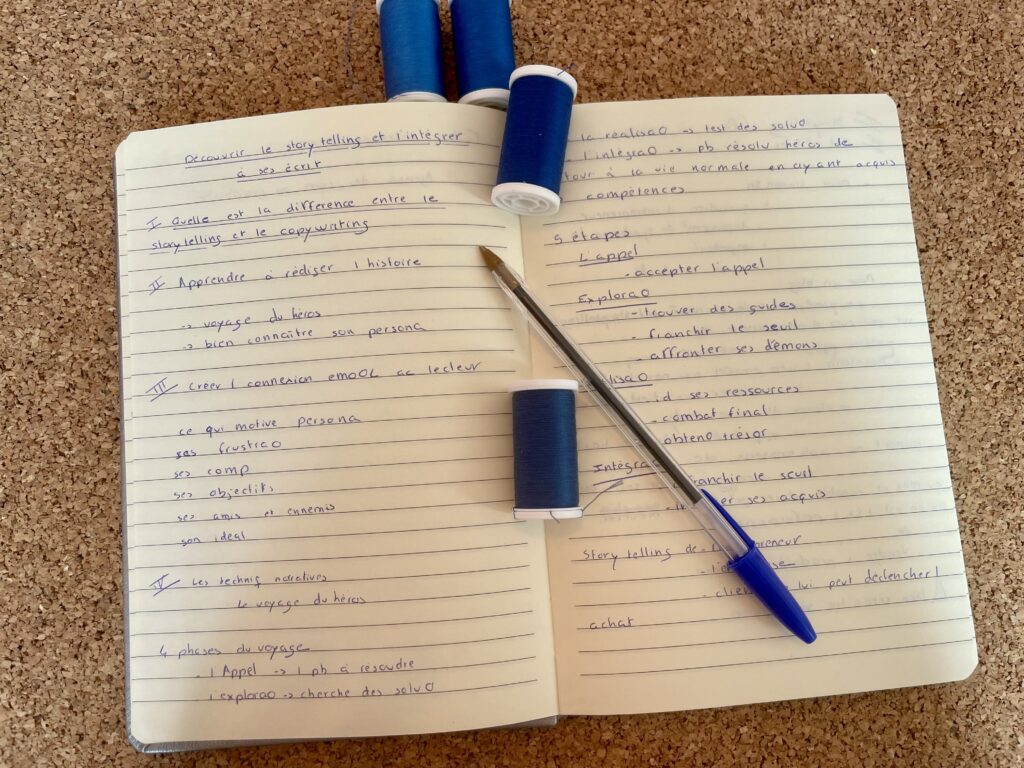 Découvrir le storytelling et l'intégrer
à ses écrit
I Quelle est la différence entre le
storytelling et le copywriting
II Apprendre à rédiger l histoire
→ voyage du héros
→ bien connaître son persona
III Créer 1 connexion emoOL ac lecteur
ce qui motive persona
ses frustraO
ses comp
ses objectifs
ses amis et ennemis
son ideal
IV Les techniq narratives
Le voyage du héros
4 phases du voyage
- 1 Appel → 1 pb à resoudre
- 1 exploraO → cherche des soluO
la réalisaO → test des soluO
l'intégraO → pb résolu héros de
tour à la vie normale en ayant acquis
compétences
5 étapes
L'appel
- accepter l'appel
ExploraO
- trouver des guides
- franchir le seuil
- affronter ses démons
lisaO
id ses ressources
- combat final
obtenO trésor
Intégra
franchir le seuil
er ses acquis
Story telling de - preneur
- l'e se
- clien lui peut déclencher l
achat